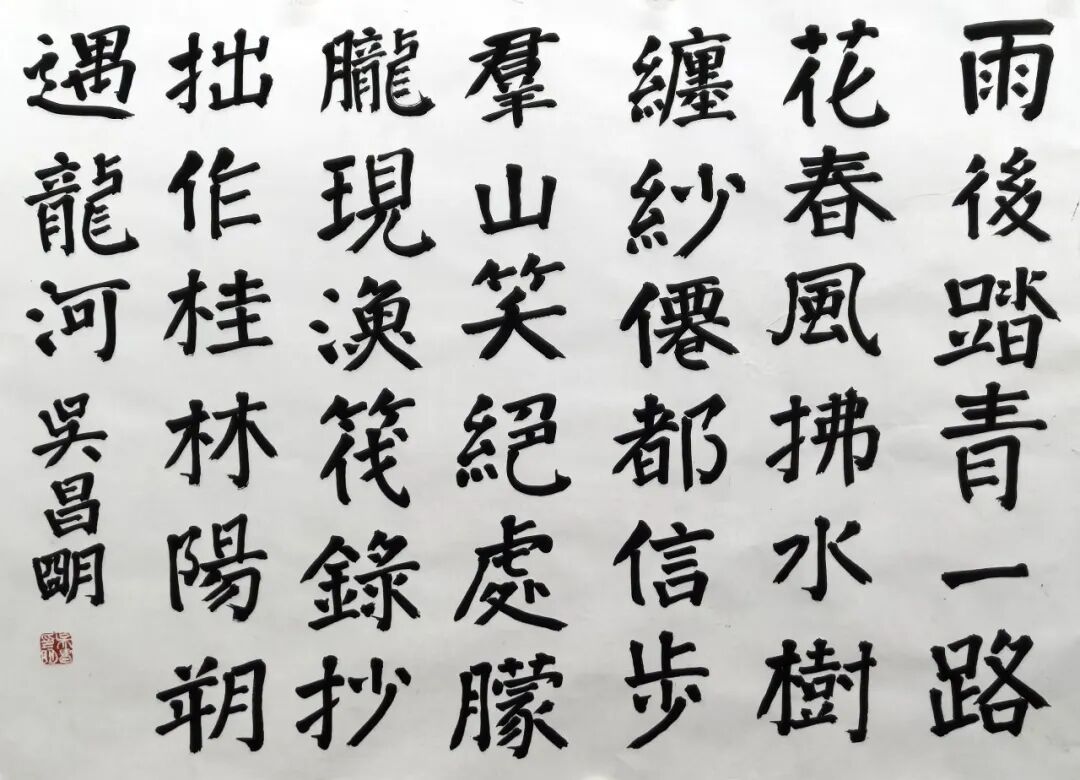 雨後踏青一路
花春風拂水樹
纏紗僊都信步
羣山笑絕處朦
朧現漁筏錄抄
拙作桂林陽朔
遇龍河
吳昌明